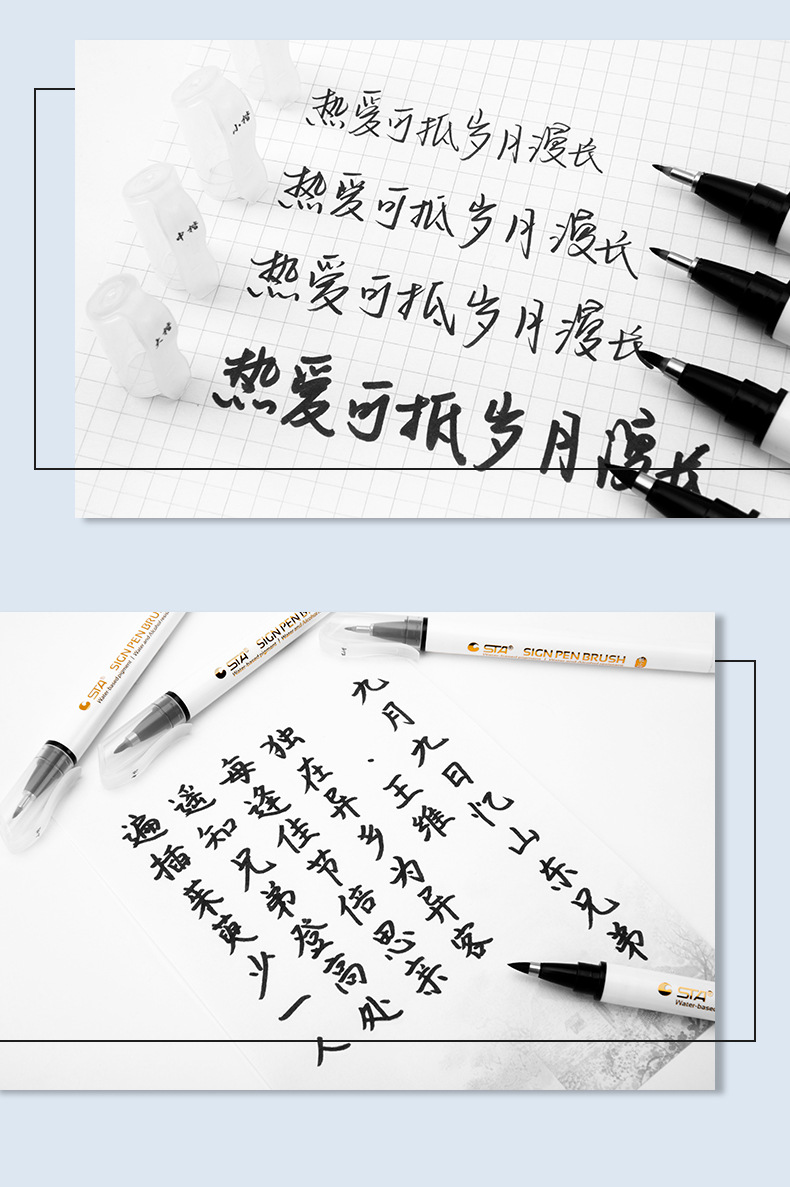 小楷
热爱可抵岁月漫长
中楷
热爱可抵岁月漫长
热爱可抵岁月漫长
大楷
热爱可抵岁月漫长
STA® SIGN PEN BRUSH
Water-based pigment | Water and Alcohol
STA® SIGN PEN
Water-based pigment | Water and Alcohol
STA® SIGN PEN BRUSH
九月九日忆山东兄弟
·王维
独在异乡为异客
每逢佳节倍思亲
遥知兄弟登高处
遍插茱萸少一人
STA®
Water-based